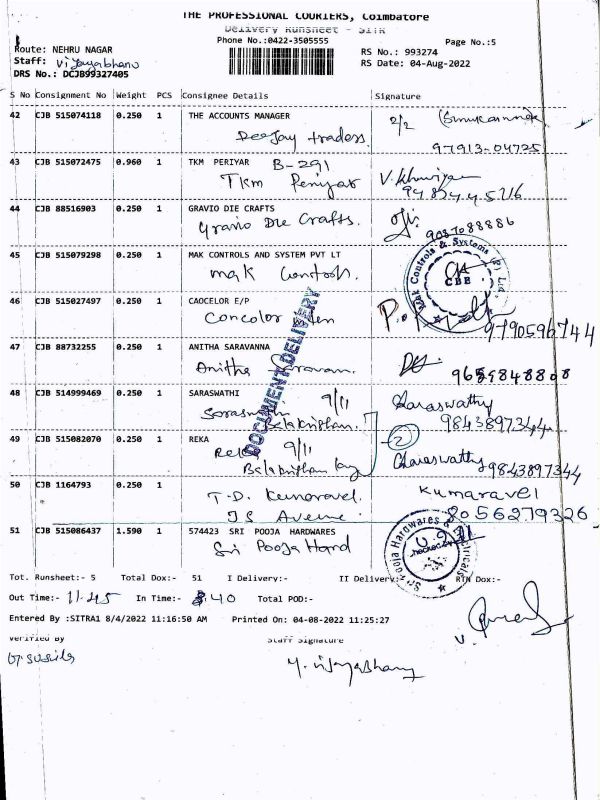 THE PROFESSIONAL COURIERS, Coimbatore
Delivery Runsheet - SITR
Phone No.:0422-3505555
Page No.:5
Route: NEHRU NAGAR
RS No.: 993274
Staff: Vijayabhanu
RS Date: 04-Aug-2022
DRS No.: DCJB99327405
S No Consignment No Weight PCS Consignee Details Signature
42 CJB 515074118 0.250 1 THE ACCOUNTS MANAGER
Deejay traders.
2/2
97913-04725
43 CJB 515072475 0.960 1 TKM PERIYAR B-291
Tkm Periyar
44 CJB 88516903 0.250 1 GRAVIO DIE CRAFTS
Gravio Die Crafts.
9087088886
45 CJB 515079298 0.250 1 MAK CONTROLS AND SYSTEM PVT LT
mak Controls.
Mak Controls & Systems (P) Ltd.
CBE
46 CJB 515027497 0.250 1 CAOCELOR E/P
Concolor
9790596744
47 CJB 88732255 0.250 1 ANITHA SARAVANNA
Anitha Saravan.
9659848808
DOCUMENT DELIVERY
48 CJB 514999469 0.250 1 SARASWATHI 9/11
Balakrishnan.
Saraswathy
9843897344
49 CJB 515082070 0.250 1 REKA 9/11
Reka
2
Saraswathy 9843897344
50 CJB 1164793 0.250 1
T.D. Kumaravel.
IS Avenue.
Kumaravel
8056279326
51 CJB 515086437 1.590 1 574423 SRI POOJA HARDWARES
Sri Pooja Hard
Sri Pooja Hardwares & Electricals
Tot. Runsheet:- 5 Total Dox:- 51 I Delivery:- II Delivery:- RTN Dox:-
Out Time:- 11.45 In Time:- 3.40 Total POD:-
Entered By :SITRA1 8/4/2022 11:16:50 AM Printed On: 04-08-2022 11:25:27
Verified By
Staff Signature
Y. Vijayabhanu